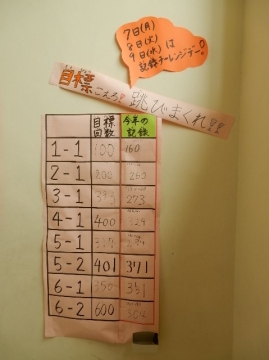 7日(月)
8日(火)
9日(水)は
記録チャレンジデー。
目標こえろ!! 跳びまくれ!!
目標回数 今年の記録
1-1 100 160
2-1 200 260
3-1 273
4-1 400
5-1
5-2 401 371
6-1 350 351
6-2 600 504